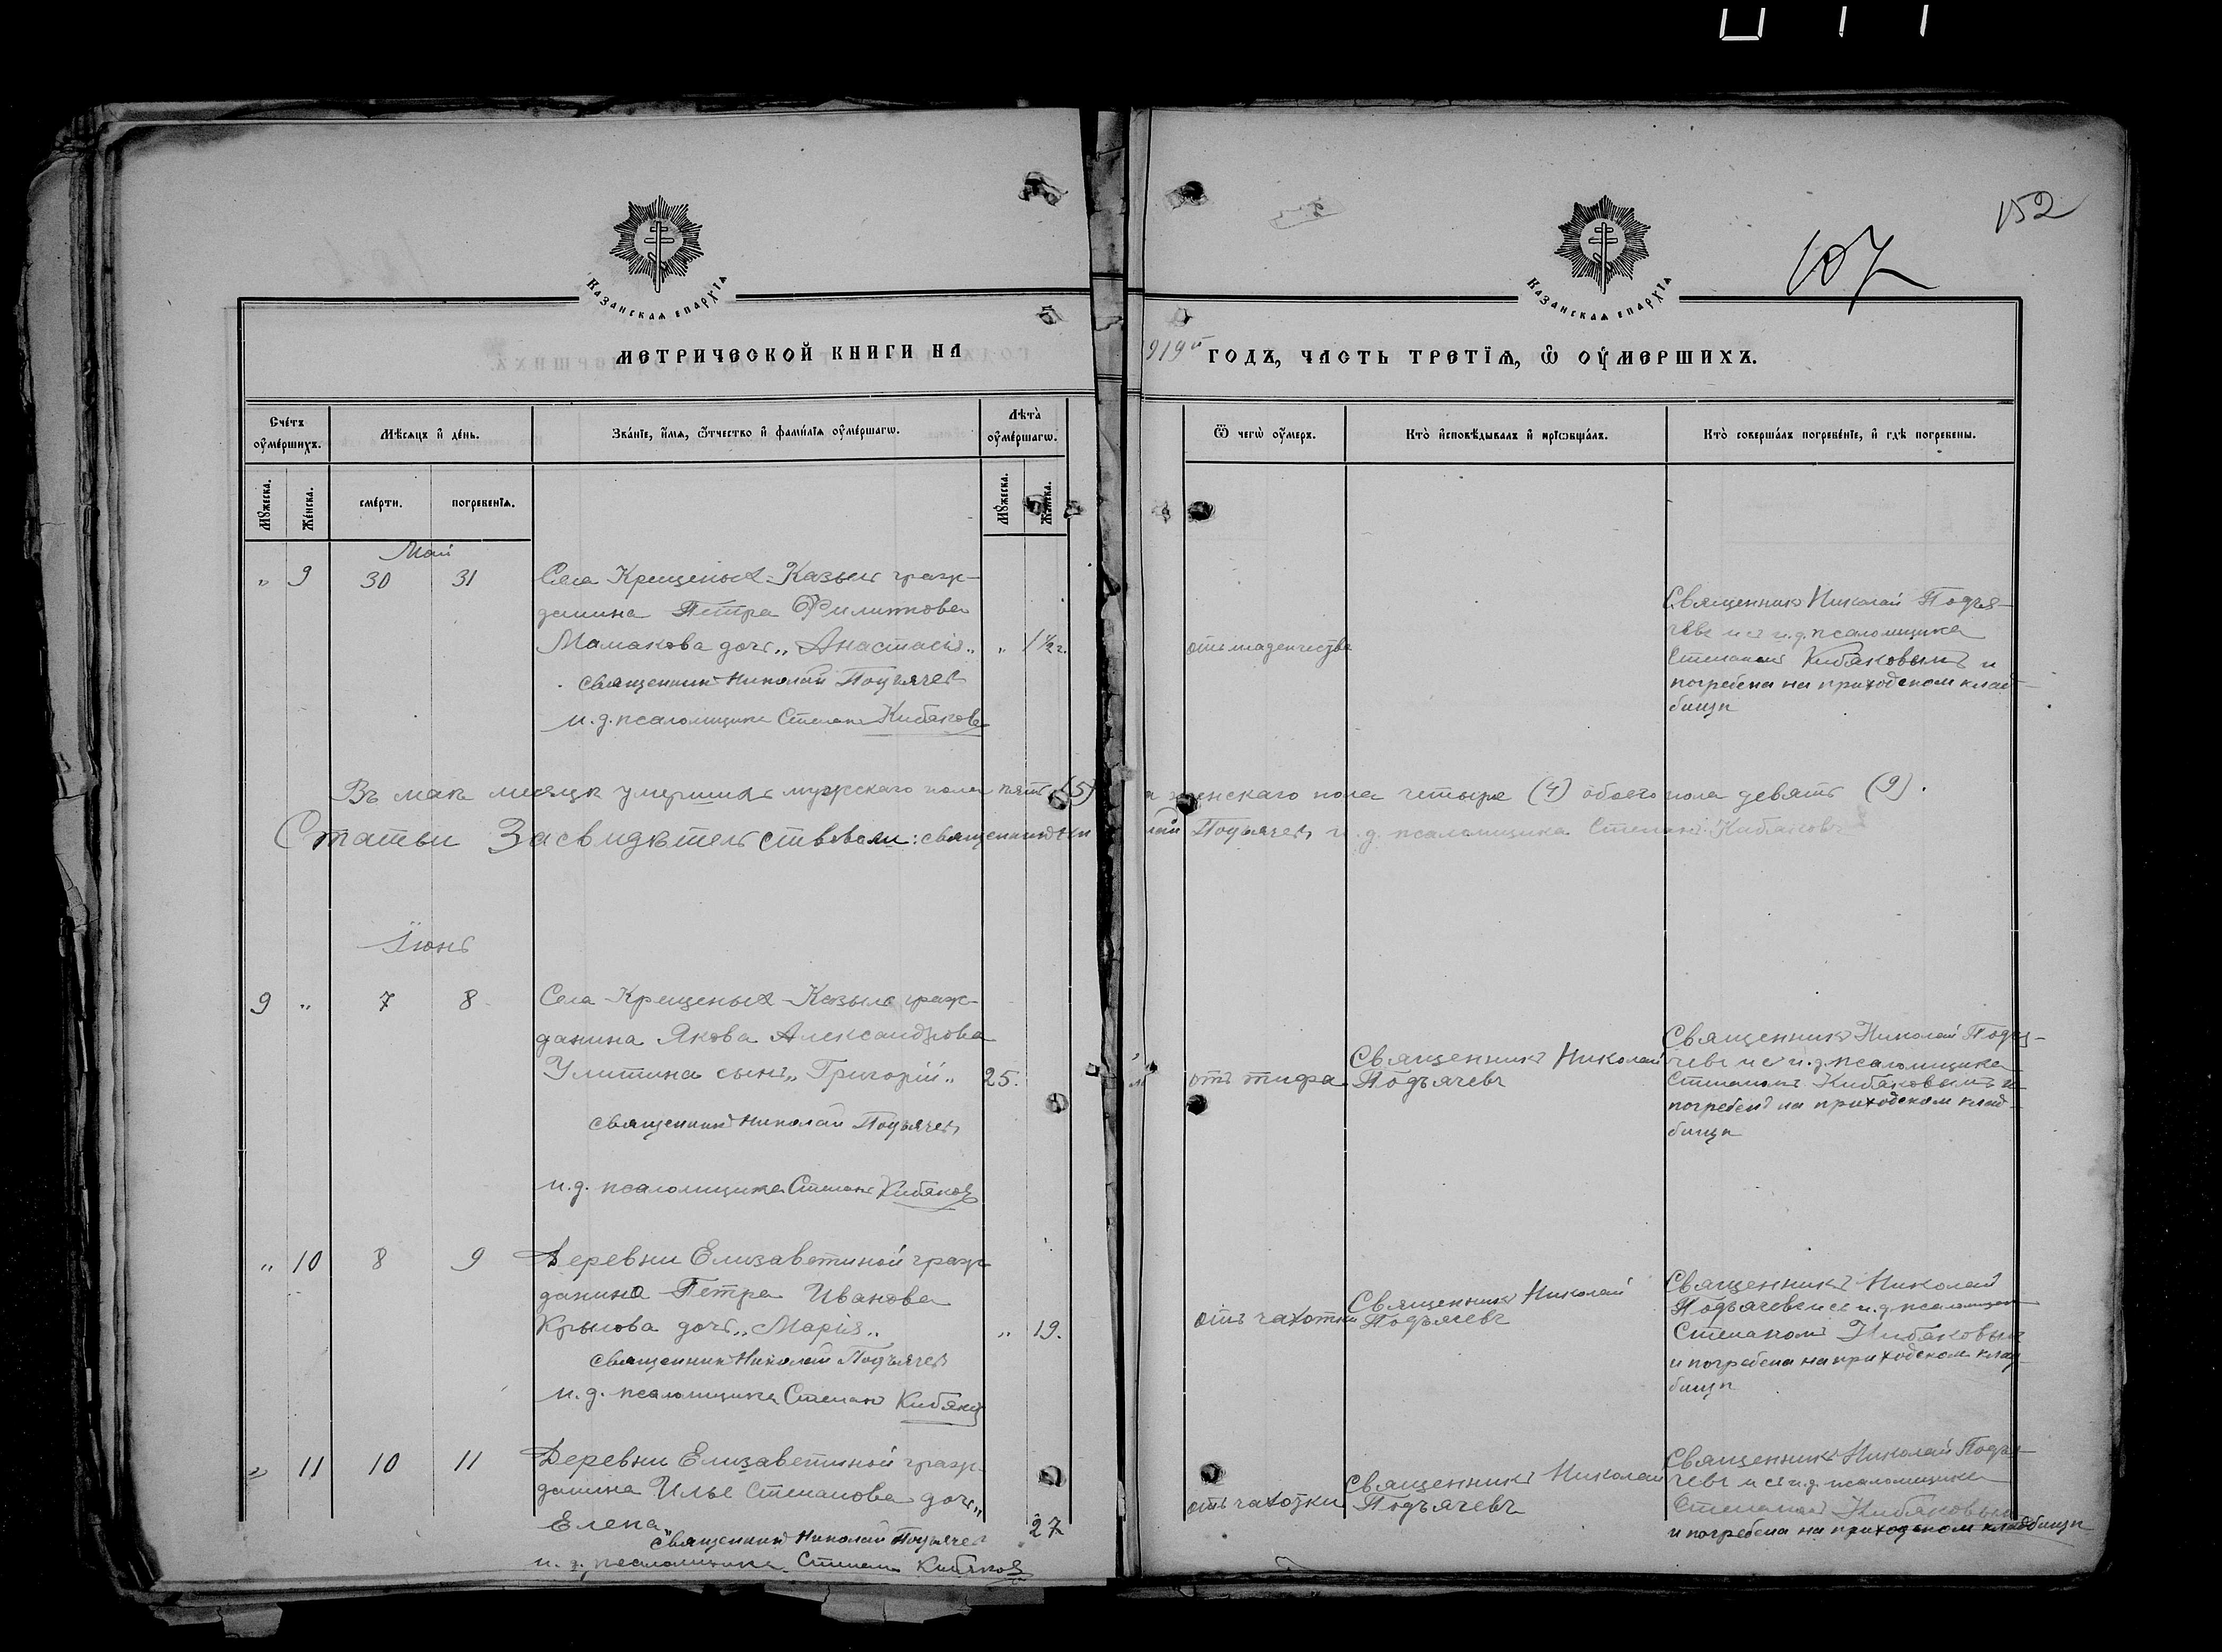 152
107
КАЗАНСКАѦ ЕПАРХЇѦ
КАЗАНСКАѦ ЕПАРХЇѦ
МЕТРИЧЕСКОЙ КНИГИ НА
919й ГОДЪ, ЧАСТЬ ТРЕТЇѦ, Ѽ ОУМЕРШИХЪ.
Счётъ оумершихъ.
Мѣсяцъ и день.
Званїе, имя, отчество и фамилїя оумершагѡ.
Лѣта оумершагѡ.
Ѿ чегѡ оумеръ.
Кто исповѣдывалъ и прїѡбщалъ.
Кто совершалъ погребенїе, и гдѣ погребены.
Мужеска.
Женска.
смерти.
погребенїя.
Мужеска.
Женска.
Май
" 9 30 31 Села Крещеныхъ-Казыль граж-
данина Петра Филиппова
Мамакова дочь „Анастасія„ " 1 ½ г.
священникъ Николай Подъячев
и.д. псаломщика Степанъ Кибяковъ
отъ младенчества
Священникъ Николай Подъя-
чевъ и съ и.д. псаломщика
Степаномъ Кибяковымъ и
погребена на приходском клад-
бищѣ
Въ маѣ месяцѣ умершихъ мужскаго пола пять (5) и женскаго пола четыре (4) обоего пола девять (9).
Статьи Засвидѣтельствовали: священникъ Николай Подъячевъ и.д. псаломщика Степанъ Кибяковъ
Іюнь
9 " 7 8 Села Крещеныхъ-Казыль граж-
данина Якова Александрова
Улитина сынъ „Григорій„ 25.
священникъ Николай Подъячевъ
и.д. псаломщика Степанъ Кибяковъ
отъ тифа
Священникъ Николай
Подъячевъ
Священникъ Николай Подъя-
чевъ и съ и.д. псаломщика
Степаномъ Кибяковымъ и
погребенъ на приходском клад-
бищѣ
" 10 8 9 Деревни Елизаветиной граж-
данина Петра Иванова
Крылова дочь „Марія„ " 19.
священникъ Николай Подъячевъ
и.д. псаломщика Степанъ Кибяковъ
отъ чахотки
Священникъ Николай
Подъячевъ
Священникъ Николай
Подъячевъ и съ и.д. псаломщика
Степаномъ Кибяковым
и погребена на приходском клад-
бищѣ
" 11 10 11 Деревни Елизаветиной граж-
данина Илье Степанова дочь „
Елена„ 27
священникъ Николай Подъячев
и.д. псаломщика Степанъ Кибяковъ
отъ чахотки
Священникъ Николай
Подъячевъ
Священникъ Николай Подъя-
чевъ и съ и.д. псаломщика
Степаномъ Кибяковым
и погребена на приходском кладбищѣ